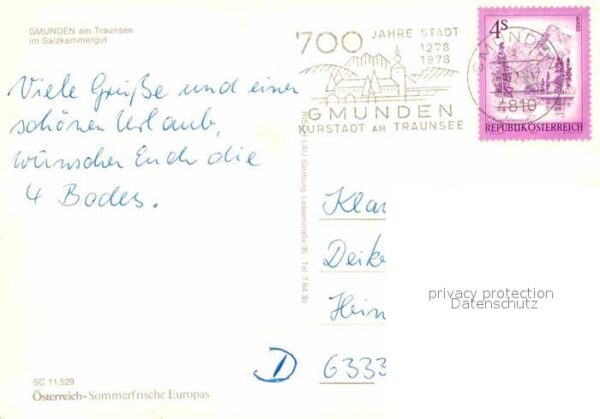 GMUNDEN am Traunsee
im Salzkammergut
Viele Grüße und einen
schönen Urlaub,
wünschen Euch die
4 Bodes.
SC 11.529
Österreich-Sommerfrische Europas
LAU Salzburg, Lasserstraße 35 Tel. 7 64 30
700 JAHRE STADT
1278
1978
GMUNDEN
KURSTADT AM TRAUNSEE
GMUNDEN
4810
4S
REPUBLIK ÖSTERREICH
Klau
Deike
Hein
D 6333
privacy protection
Datenschutz